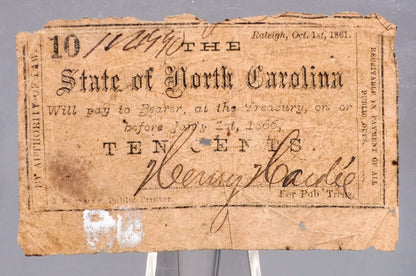 10 THE Raleigh, Oct. 1st, 1861.
State of North Carolina
Will pay to Bearer, at the Treasury, on or
before Jan'y 1st, 1866,
TEN CENTS.
Henry Hardie
For Pub Treas.
Public Printer.
BY AUTHORITY OF LAW.
RECEIVABLE IN PAYMENT OF ALL
PUBLIC DUES.